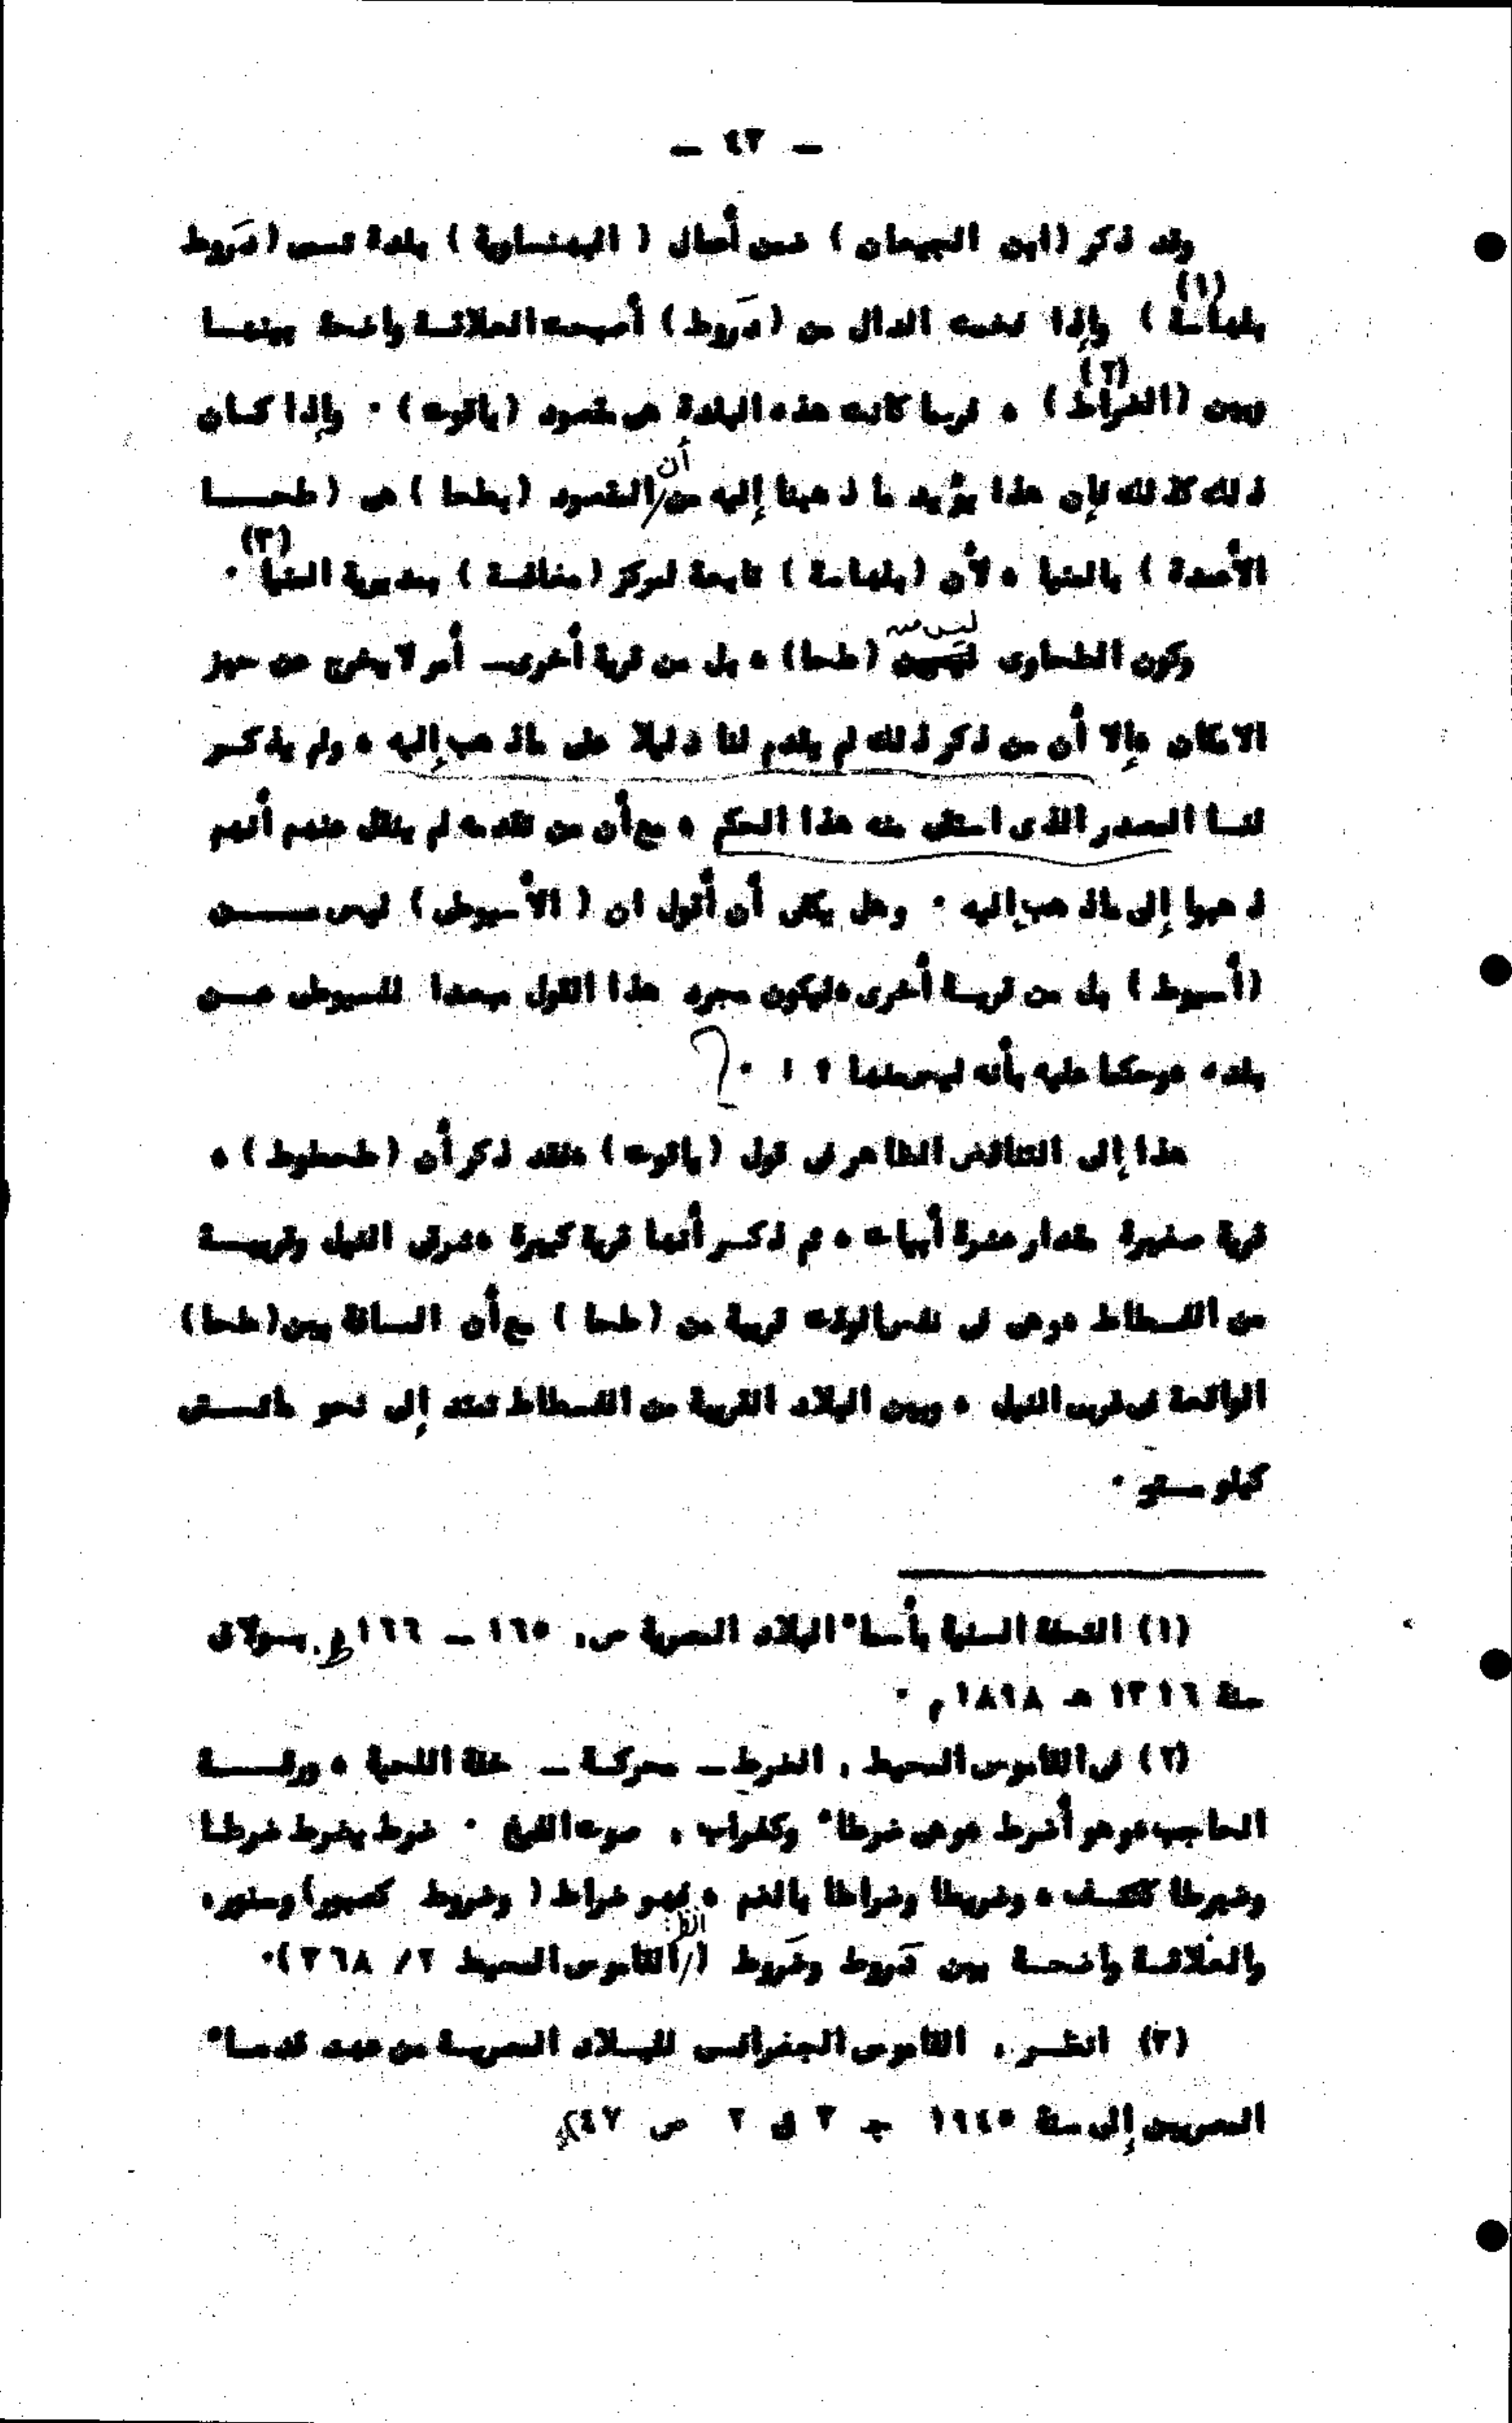 — ٤٣ —
وقد ذكر (ابن الجيعان) ضمن أعمال ( البهنساوية ) بلدة تسمى (دَروط
بلهاسة ) (١) وإذا فخمت الدال من (دَروط) أصبحت العلاقة واضحة بينها
وبين (الضراط) (٢) ، فربما كانت هذه البلدة هى مقصود (ياقوت) . وإذا كان
ذلك كذلك فإن هذا يؤيد ما ذهبنا إليه من أن المقصود (بطحا ) هى ( طحا
الأعمدة ) بالمنيا ، لأن (بلهاسة ) تابعة لمركز (مغاغة ) بمديرية المنيا (٣) .
وكون الطحاوى ليس من (طحا) ، بل من قرية أخرى — أمر لا يخرج عن حيز
الامكان ، إلا أن من ذكر ذلك لم يقدم لنا دليلا على ما ذهب إليه ، ولم يذكر
لنا المصدر الذى استقى منه هذا الحكم ، مع أن من تقدمه لم ينقل عنهم أنهم
ذهبوا إلى ما ذهب إليه . وهل يكفى أن أقول ان ( الأسيوطى ) ليس من
(أسيوط ) بل من قرية أخرى ، ليكون مجرد هذا القول مبعدا للسيوطى عن
بلده ، وحكما عليه بأنه ليس منها ؟ ! .
هذا إلى التناقض الظاهر فى قول (ياقوت) ، فقد ذكر أن (طحطوط) ،
قرية صغيرة مقدار عشرة أبيات ، ثم ذكر أنها قرية كبيرة ، شرقى النيل وقريبة
من الفسطاط ، وهى فى نفس الوقت قريبة من (طحا ) مع أن المسافة بين (طحا)
الواقعة فى غرب النيل ، وبين البلاد القريبة من الفسطاط تمتد إلى نحو مائتى
كيلو متر .
(١) التحفة السنية بأسماء البلاد المصرية ص، ١٦٥ — ١٦٦ ط. بولاق
سنة ١٣١٦ هـ ١٨٩٨م .
(٢) فى القاموس المحيط ، الضرط — محركة — خفة اللحية ، ورقة
الحاجب ، وهو أضرط ، وهى ضرطاء وكغراب ، صوت الفيخ . ضرط يضرط ضرطا
وضرطا ككتف ، وضريطا وضراطا بالضم ، فهو ضراط ( وضروط كصبور) وسنور،
والعلاقة واضحة بين دَروط وضَروط ( انظر: القاموس المحيط ٢/ ٣٦٨ ).
(٣) انظر ، القاموس الجغرافى للبلاد المصرية من عهد قدماء
المصريين إلى سنة ١٩٤٥ جـ ٣ ق ٢ ص ٢٤٧